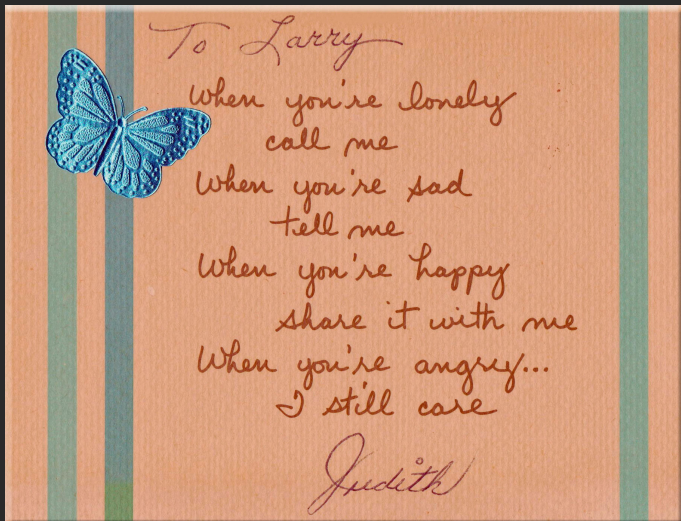 To Larry
When you're lonely
call me
When you're sad
tell me
When you're happy
share it with me
When you're angry...
I still care
Judith